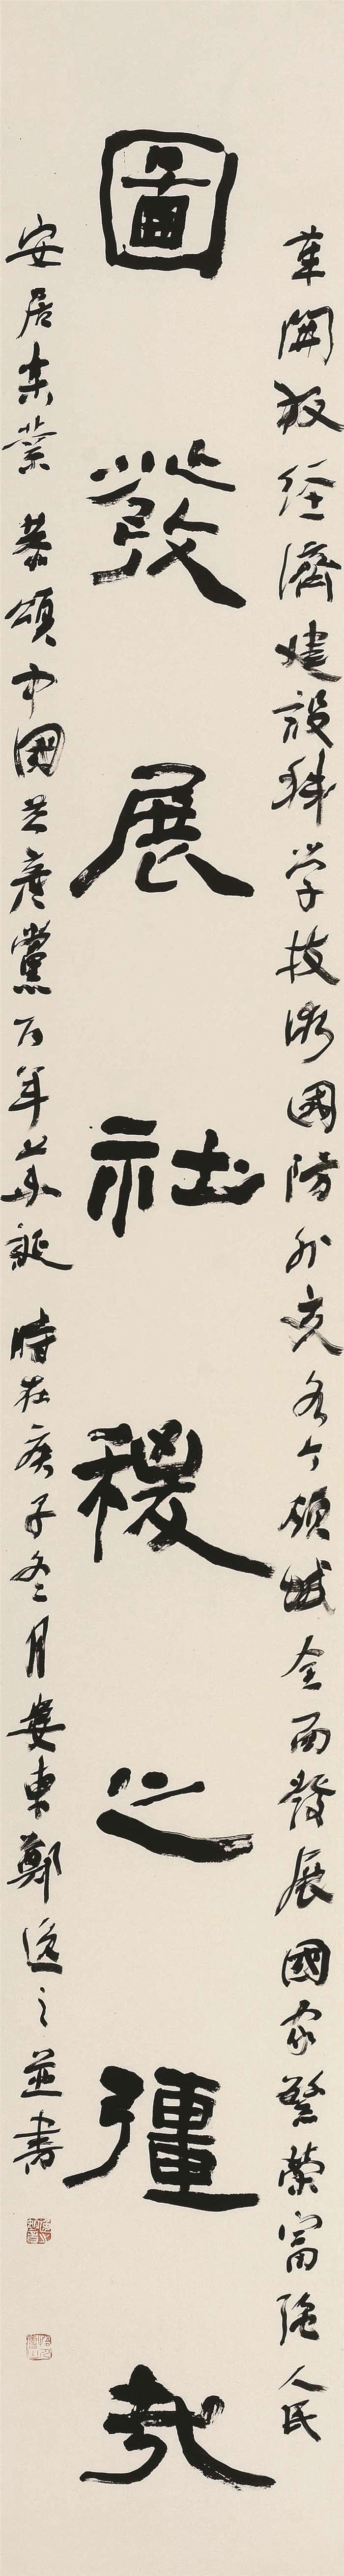 革開放經濟建設科学技術國防外交各个領域全面發展國家繁榮富強人民
圖發展社稷之彊哉
安居樂業恭頌中國共產黨百年華誕時在庚子冬月安東鄭遠之並書